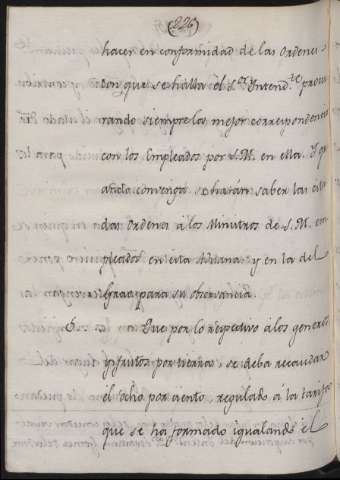 (226)
hacer en conformidad de las Ordenes
con que se hálla el S.or Yntend.te procu
rando siempre la mejor correspondencia
con los Empleados por S.M. en ella. Y qu
ando convenga se harán saber las cita
das Ordenes á los Ministros de S.M. em
pleados en esta Aduana y en la del
para su observancia.
6. Que por lo respectivo á los generos
y frutos por tierra, se deba recaudar
el ocho por ciento, regulado á la tarifa
que se ha formado igualando el